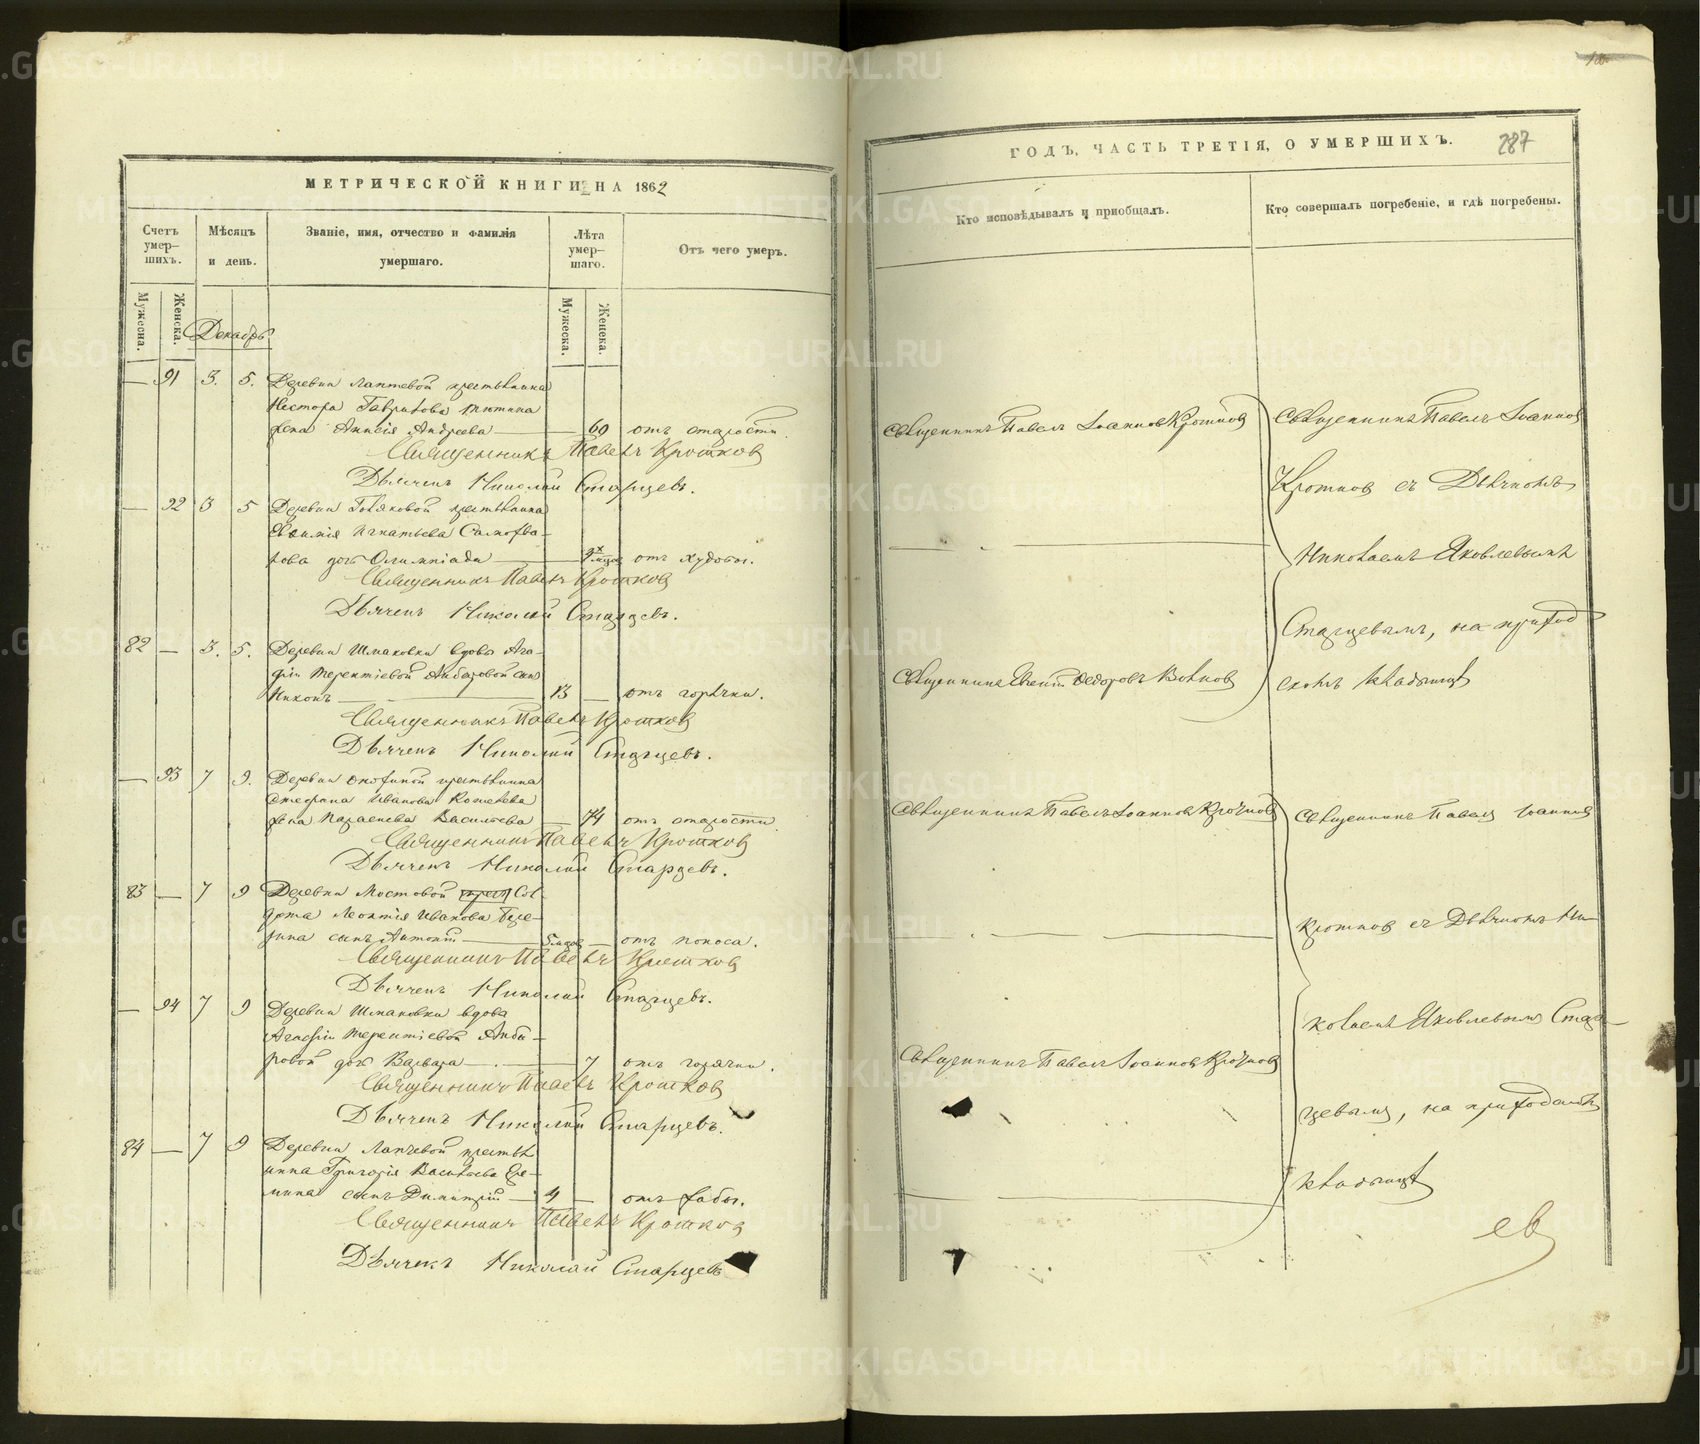 МЕТРИЧЕСКОЙ КНИГИ НА 1862
Счетъ умер-шихъ.
Мѣсяцъ и день.
Званіе, имя, отчество и фамилія умершаго.
Лѣта умер-шаго.
Отъ чего умеръ.
Мужеска.
Женска.
Мужеска.
Женска.
Декабрь
— 91 3. 5. Деревни Лаптевой крестьянина
Нестора Гаврилова
жена Анисія Андреева — 60 отъ старости.
Священникъ Павелъ Кротковъ
Дьячекъ Николай Старцевъ.
— 92 3 5 Деревни крестьянина
Евѳимія Игнатьева
дочь Олимпіада — отъ худобы.
Священникъ Павелъ Кротковъ
Дьячекъ Николай Старцевъ.
82 — 3. 5. Деревни Шмаковки вдовы Ага-
фіи Терентіевой сынъ
Никонъ — 13 — отъ горячки.
Священникъ Павелъ Кротковъ
Дьячекъ Николай Старцевъ.
— 93 7 9. Деревни крестьянина
Стефана Иванова
жена Параскева Васильева — 74 отъ старости
Священникъ Павелъ Кротковъ
Дьячекъ Николай Старцевъ.
83 — 7 9 Деревни Мостовой Сол-
дата Леонтія Иванова
сынъ Антоній — 5 мцов — отъ поноса.
Священникъ Павелъ Кротковъ
Дьячекъ Николай Старцевъ.
— 94 7 9 Деревни Шмаковки вдова
Агафіи Терентіевой
дочь Варвара — 7 отъ горячки.
Священникъ Павелъ Кротковъ
Дьячекъ Николай Старцевъ.
84 — 7 9 Деревни Лапчевой крестья
нина Григорія Васильева Ере-
мина сынъ Димитрій — 4 — отъ жабы.
Священникъ Павелъ Кротковъ
Дьячекъ Николай Старцевъ
ГОДЪ, ЧАСТЬ ТРЕТІЯ, О УМЕРШИХЪ.
287
Кто исповѣдывалъ и пріобщалъ.
Кто совершалъ погребеніе, и гдѣ погребены.
Священникъ Павелъ Іоанновъ Кротковъ
Священникъ Павелъ Іоанновъ
Кротковъ съ Дьячкомъ
Николаемъ Яковлевымъ
Старцевымъ, на приход
скомъ кладбищѣ
Священникъ Евгеній Ѳедоровъ Волковъ
Священникъ Павелъ Іоанновъ Кротковъ
Священникъ Павелъ Іоанновъ
Кротковъ съ Дьячкомъ Ни-
колаемъ Яковлевымъ Стар-
цевымъ, на приходскомъ
кладбищѣ
Священникъ Павелъ Іоанновъ Кротковъ
METRIKI.GASO-URAL.RU